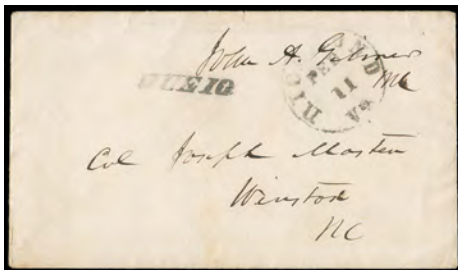 John A. Gilmer
MC
RICHMOND Va.
FEB
11
DUE 10
Col Joseph Masten
Winston
NC